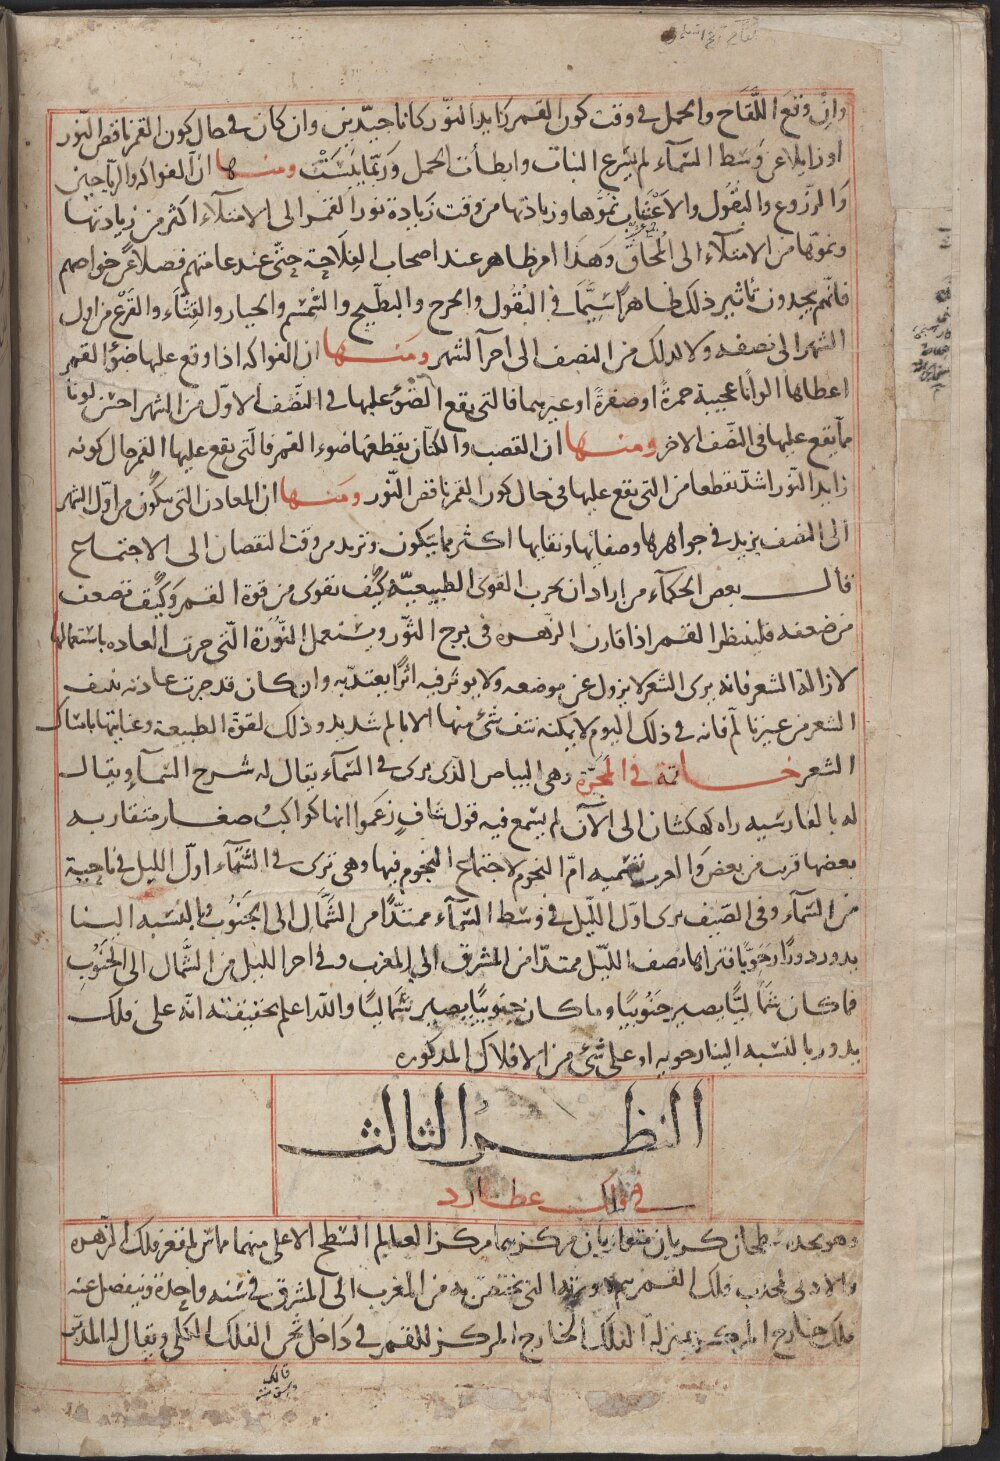 وان وقع اللقاح والحمل في وقت كون القمر زايد النور كانا جيدين وان كان في حال كون القمر ناقص النور
او زايلا عن وسط السماء لم يسرع النبات وابطأت الحمل وربما يبست ومنها ان الفواكه والرياحين
والزروع والبقول والاعشاب نموها وزيادتها من وقت زيادة نور القمر الى الامتلاء اكثر من زيادتها
ونموها من الامتلاء الى المحاق وهذا امر ظاهر عند اصحاب الفلاحة حتى عند عامتهم فضلا عن خواصهم
فانهم يجدون تأثير ذلك ظاهرا سيما في البقول والبطيخ والسمسم والخيار والقثاء والقرع من اول
الشهر الى نصفه ولا كذلك من النصف الى اخر الشهر ومنها ان الفواكه اذا وقع عليها ضوء القمر
اعطاها الوانا عجيبة حمرة او صفرة او غيرهما فالتي يقع الضوء عليها في النصف الاول من الشهر احسن لونا
مما يقع عليها في النصف الاخر ومنها ان القصب والكتان يقطعها ضوء القمر فالتي يقع عليها القمر حال كونه
زايد النور اشد تقطعا من التي يقع عليها في حال كون القمر ناقص النور ومنها ان المعادن التي يتكون من اول الشهر
الى النصف يزيد في جواهرها وصفايها ونقايها اكثر مما يتكون وتريد من وقت النقصان الى الاجتماع
قال بعض الحكماء من اراد ان يجرب القوى الطبيعية كيف تقوى من قوة القمر وكيف تضعف
من ضعفه فلينظر القمر اذا قارن الزهرة في برج الثور ويستعمل النورة التي جرت العاده باستعمالها
لازالة الشعر فانه يرى الشعر لا يزول عن موضعه ولا يوثر فيه اثرا يعتد به وان كان قد جرت عادته نتف
الشعر من غير تألم فانه في ذلك اليوم لا يمكنه نتف شئ منها الا بالم شديد وذلك لقوة الطبيعة وعنايتها بامساك
الشعر خاتمة في المجرة وهى البياض الذي يرى في السماء يقال له شرح السماء ويقال
له بالفارسيه راه كهكشان الى الآن لم يسمع فيه قول شاف زعموا انها كواكب صغار متقاربه
بعضها قريب من بعض والعرب تسميه ام النجوم لاجتماع النجوم فيها وهى ترى في السماء اول الليل في ناحية
من السماء وفي الصيف يرى اول الليل في وسط السماء ممتدا من الشمال الى الجنوب وبالنسبه الينا
يدور دورا رحويا فتراها نصف الليل ممتدا من المشرق الى المغرب وفي اخر الليل من الشمال الى الجنوب
فما كان شماليا يصير جنوبيا وما كان جنوبيا يصير شماليا والله اعلم بحقيقته انه على فلك
يدور بالنسبه الينا رحويه او على شئ من الافلاك المذكوره
النظر الثالث
في فلك عطارد
وهو يحده سطحان كريان متوازيان مركزهما مركز العالم السطح الاعلى منهما مماس لمقعر فلك الزهره
والادنى لمحدب فلك القمر يتم دورته التي يختص به من المغرب الى المشرق في سنه واحدة وينفصل عنه
فلك خارج المركز بمنزلة الفلك الخارج المركز للقمر في داخل ثخن الفلك الكلي ويقال له المدير